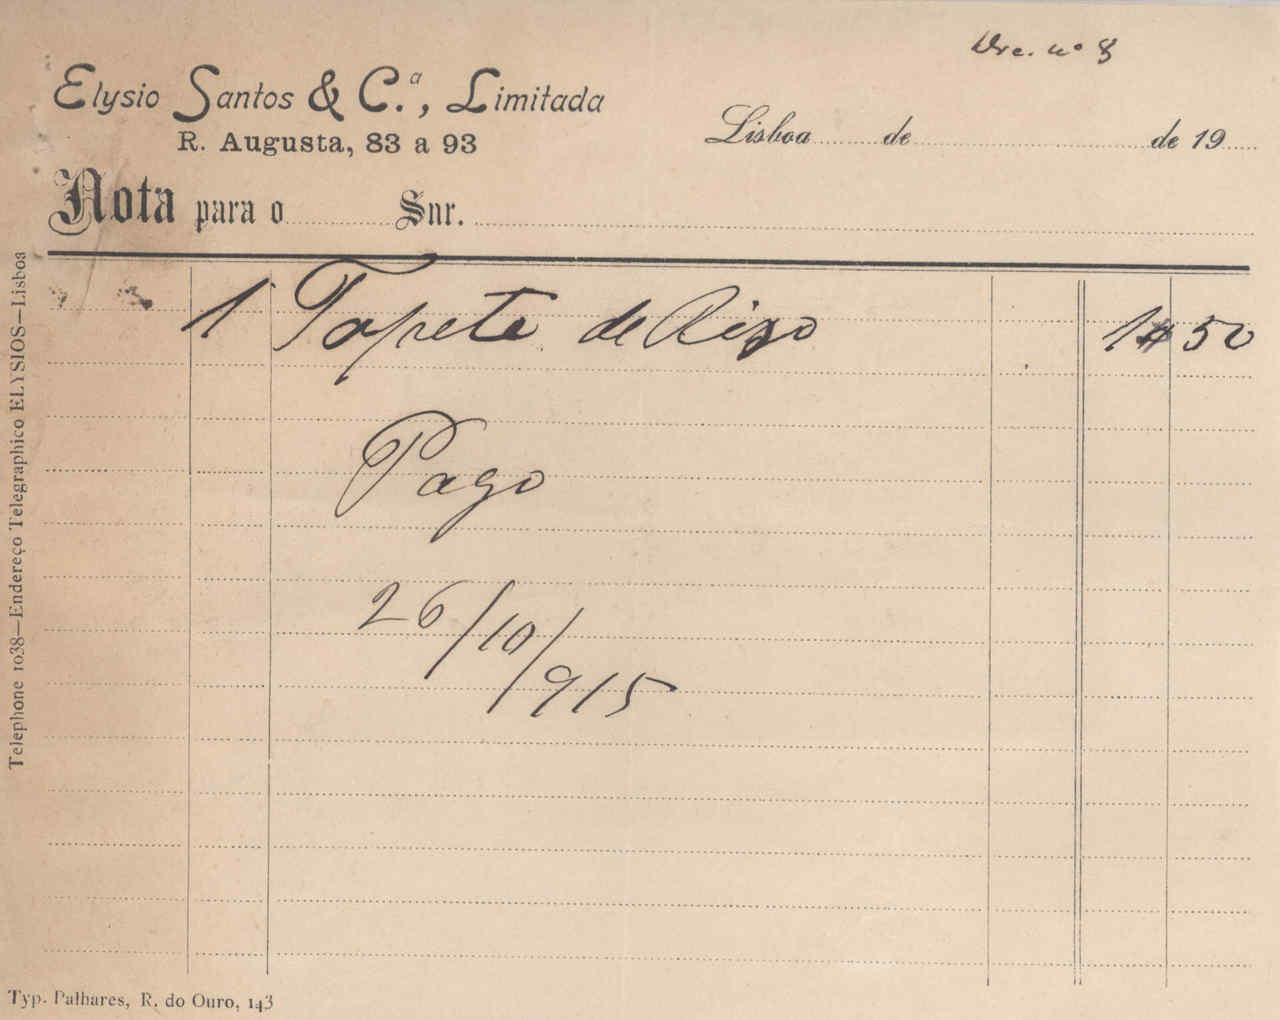 Doc. nº 8
Elysio Santos & C.ª, Limitada
R. Augusta, 83 a 93
Lisboa ........ de ........................ de 19.....
Nota para o ............ Snr. ........................
1 Tapete de Rizo 1$50
Pago
26/10/915
Telephone 1038—Endereço Telegraphico ELYSIOS—Lisboa
Typ. Palhares, R. do Ouro, 143